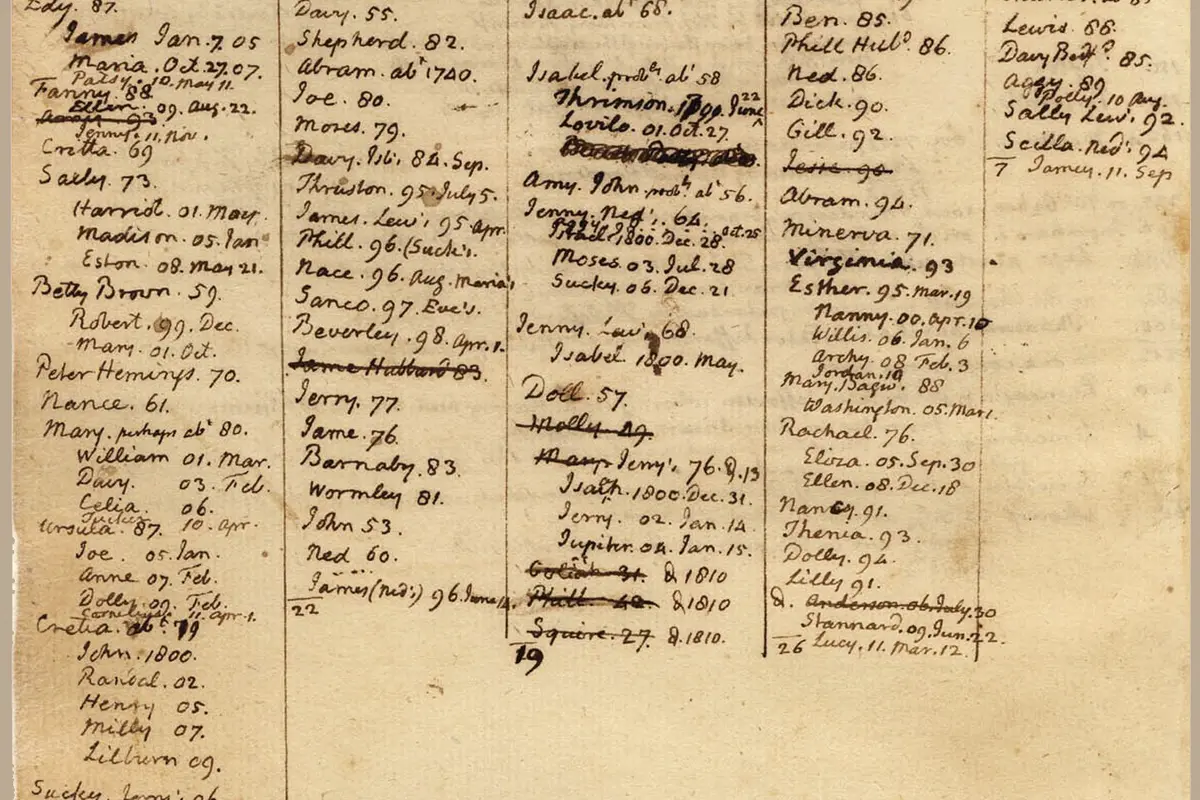 Edy. 87.
James Jan. 7. 05
Maria. Oct. 27. 07.
Patsy. 10. May 11.
Fanny. 88
Ellen. 09. Aug. 22.
Jenny. 11. Nov.
Cretta. 69
Sally. 73.
Harriet. 01. May.
Madison. 05. Jan
Eston. 08. May 21.
Betty Brown. 59.
Robert. 99. Dec.
Mary. 01. Oct.
Peter Hemings. 70.
Nance. 61.
Mary. perhaps abt 80.
William 01. Mar.
Davy. 03. Feb.
Celia. 06.
Tucker 10. Apr.
Ursula. 87.
Joe. 05. Jan.
Anne 07. Feb.
Dolly. 09. Feb.
Cornelius. 11. Apr. 1.
Cretia. abt. 79
John. 1800.
Randal. 02.
Henry 05.
Milly 07.
Lilburn 09.
Sucky. 96
Davy. 55.
Shepherd. 82.
Abram. abt 1740.
Joe. 80.
Moses. 79.
Davy. Isb's 84. Sep.
Thruston. 95. July 5.
James. Lew's 95 Apr.
Phill. 96. (Suck's.
Nace. 96. Aug. Maria's
Sanco. 97. Eve's.
Beverley. 98. Apr. 1.
Jame Hubbard 83.
Jerry. 77.
Jame. 76.
Barnaby. 83.
Wormley 81.
John 53.
Ned 60.
James (Ned's) 96. June
22
Isaac. abt 68.
Isabel. probly abt 58
Thrimson. 1799. June 22
Lovilo. 01. Oct. 27.
Amy. John. probly abt 56.
Jenny. Ned's. 64.
Aggy. Oct. 25
Israel. 1800. Dec. 28.
Moses. 03. Jul. 28
Sucky. 06. Dec. 21
Jenny. Lew's 68.
Isabel. 1800. May.
Doll. 57.
Molly.
Mary Jerry's 76. d. 13
Isaiah. 1800. Dec. 31.
Jerry. 02. Jan. 14.
Jupiter. 04. Jan. 15.
Goliah 31. d 1810
Phill. d 1810
Squire. 27. d. 1810.
19
Ben. 85.
Phill Hubd. 86.
Ned. 86.
Dick. 90.
Gill. 92.
Jesse 90
Abram. 94.
Minerva. 71.
Virginia. 93
Esther. 95. Mar. 19
Nanny. 00. Apr. 10
Willis. 06. Jan. 6
Archy. 08 Feb. 3
Jordan.
Mary. Bagw's. 88
Washington. 05. Mar 1.
Rachael. 76.
Eliza. 05. Sep. 30
Ellen. 08. Dec. 18
Nancy. 91.
Thenia. 93.
Dolly. 94.
Lilly 91.
d. Anderson. 06. July. 30
Stannard. 09. Jun. 22.
26 Lucy. 11. Mar. 12.
Lewis. 88.
Davy Bedfd. 85.
Aggy. 89
Polly. 10 Aug.
Sally Lew's. 92.
Scilla. Ned's 94
7 James. 11. Sep